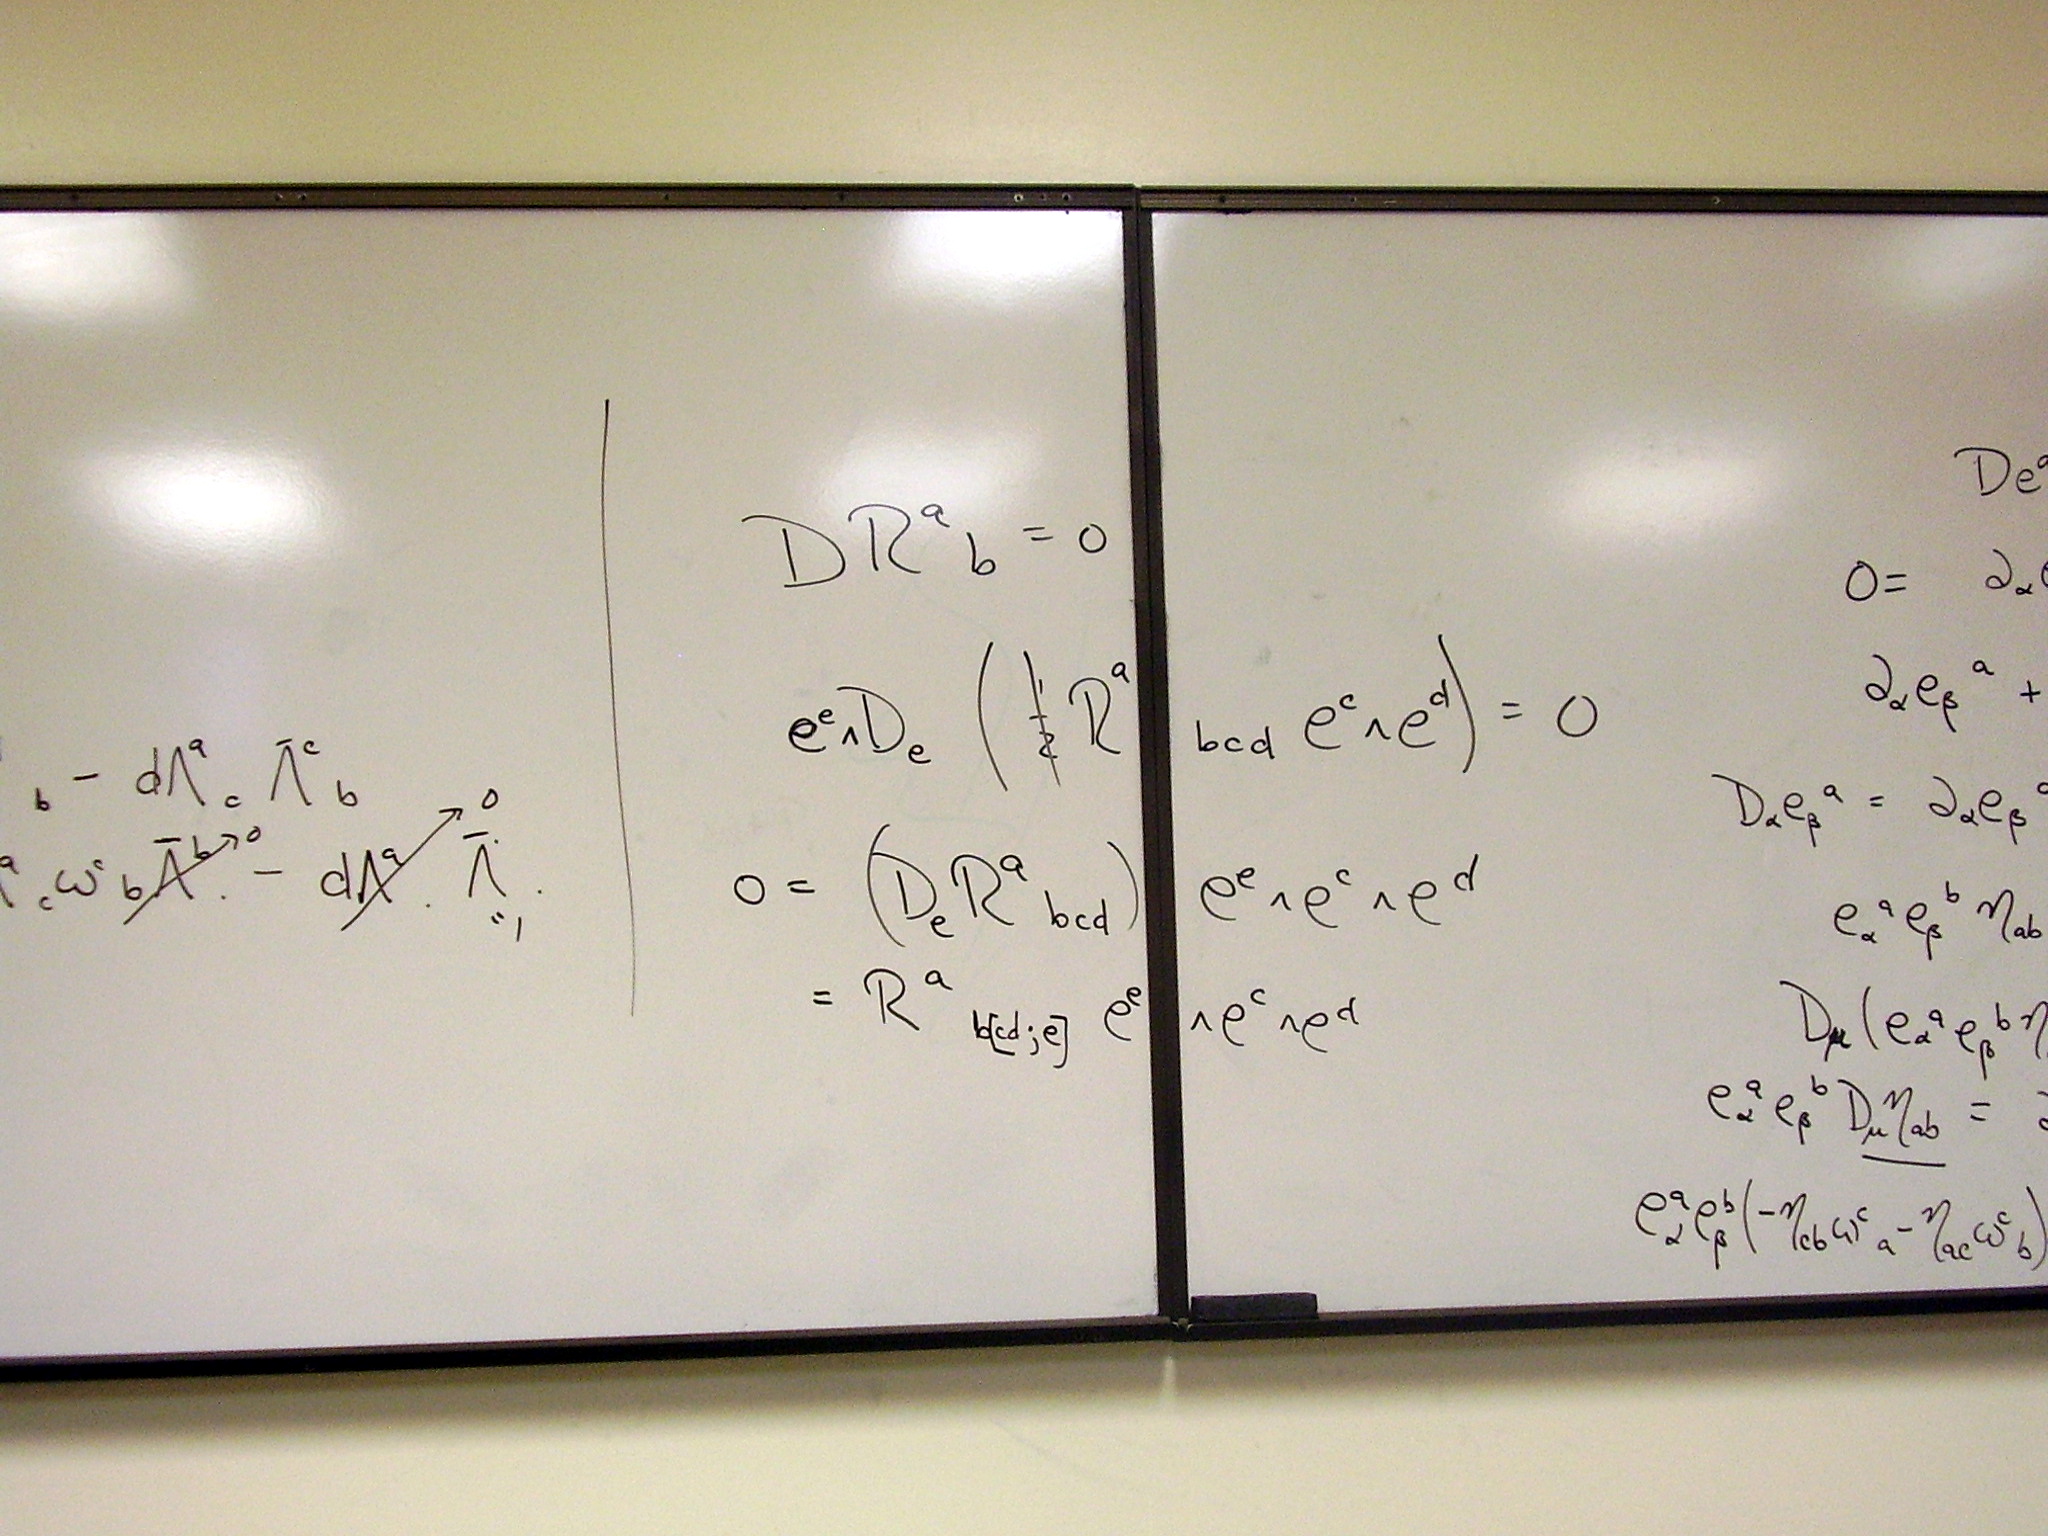 b − dΛᵃ c Λ̄ᶜ b
ᵃ c ωᶜ b Λ̄ᵇ . → 0 − dΛᵃ . → 0 Λ̄ .
D Rᵃ b = 0
eᵉ ∧ Dₑ ( ½ Rᵃ bcd eᶜ ∧ eᵈ ) = 0
0 = ( Dₑ Rᵃ bcd ) eᵉ ∧ eᶜ ∧ eᵈ
= Rᵃ b[cd;e] eᵉ ∧ eᶜ ∧ eᵈ
Deᵃ
0 = ∂α e
∂α eβ ᵃ +
Dα eβ ᵃ = ∂α eβ ᵃ
eα ᵃ eβ ᵇ ηab
Dμ ( eα ᵃ eβ ᵇ η
eα ᵃ eβ ᵇ Dμ ηab = ∂
eα ᵃ eβ ᵇ ( − ηcb ωᶜ a − ηac ωᶜ b )